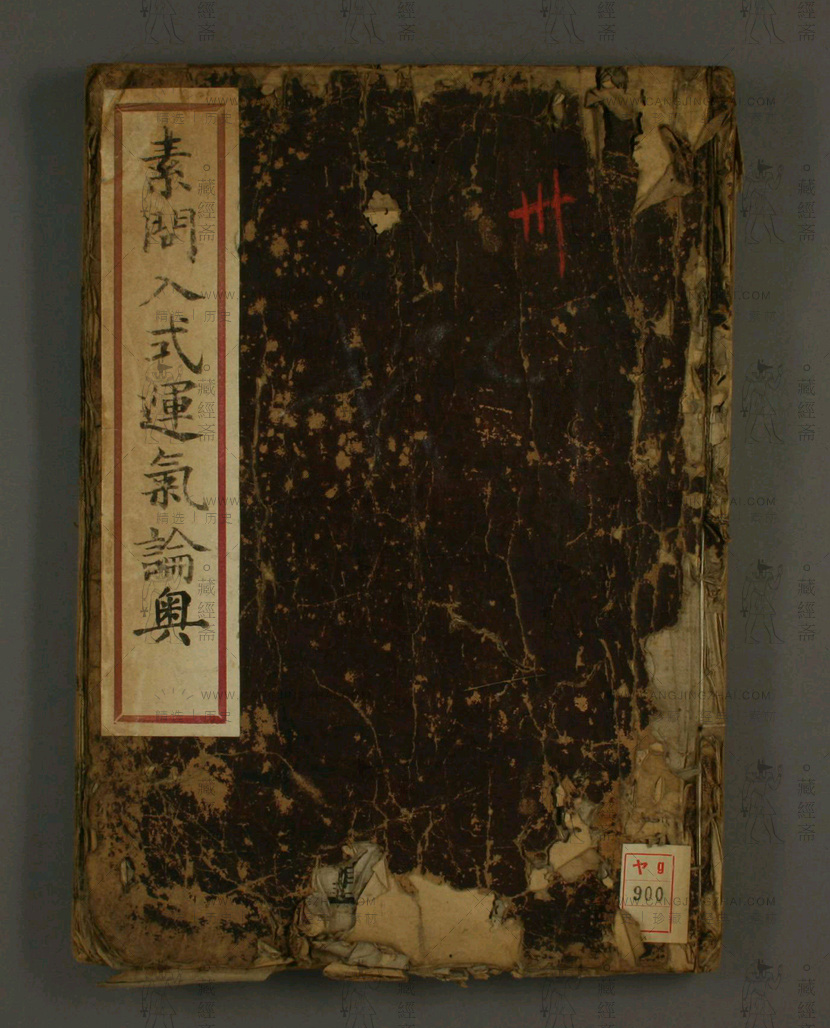 素問入式運氣論奥
卅
ヤ9
900
藏經斋
WWW.CANGJINGZHAI.COM